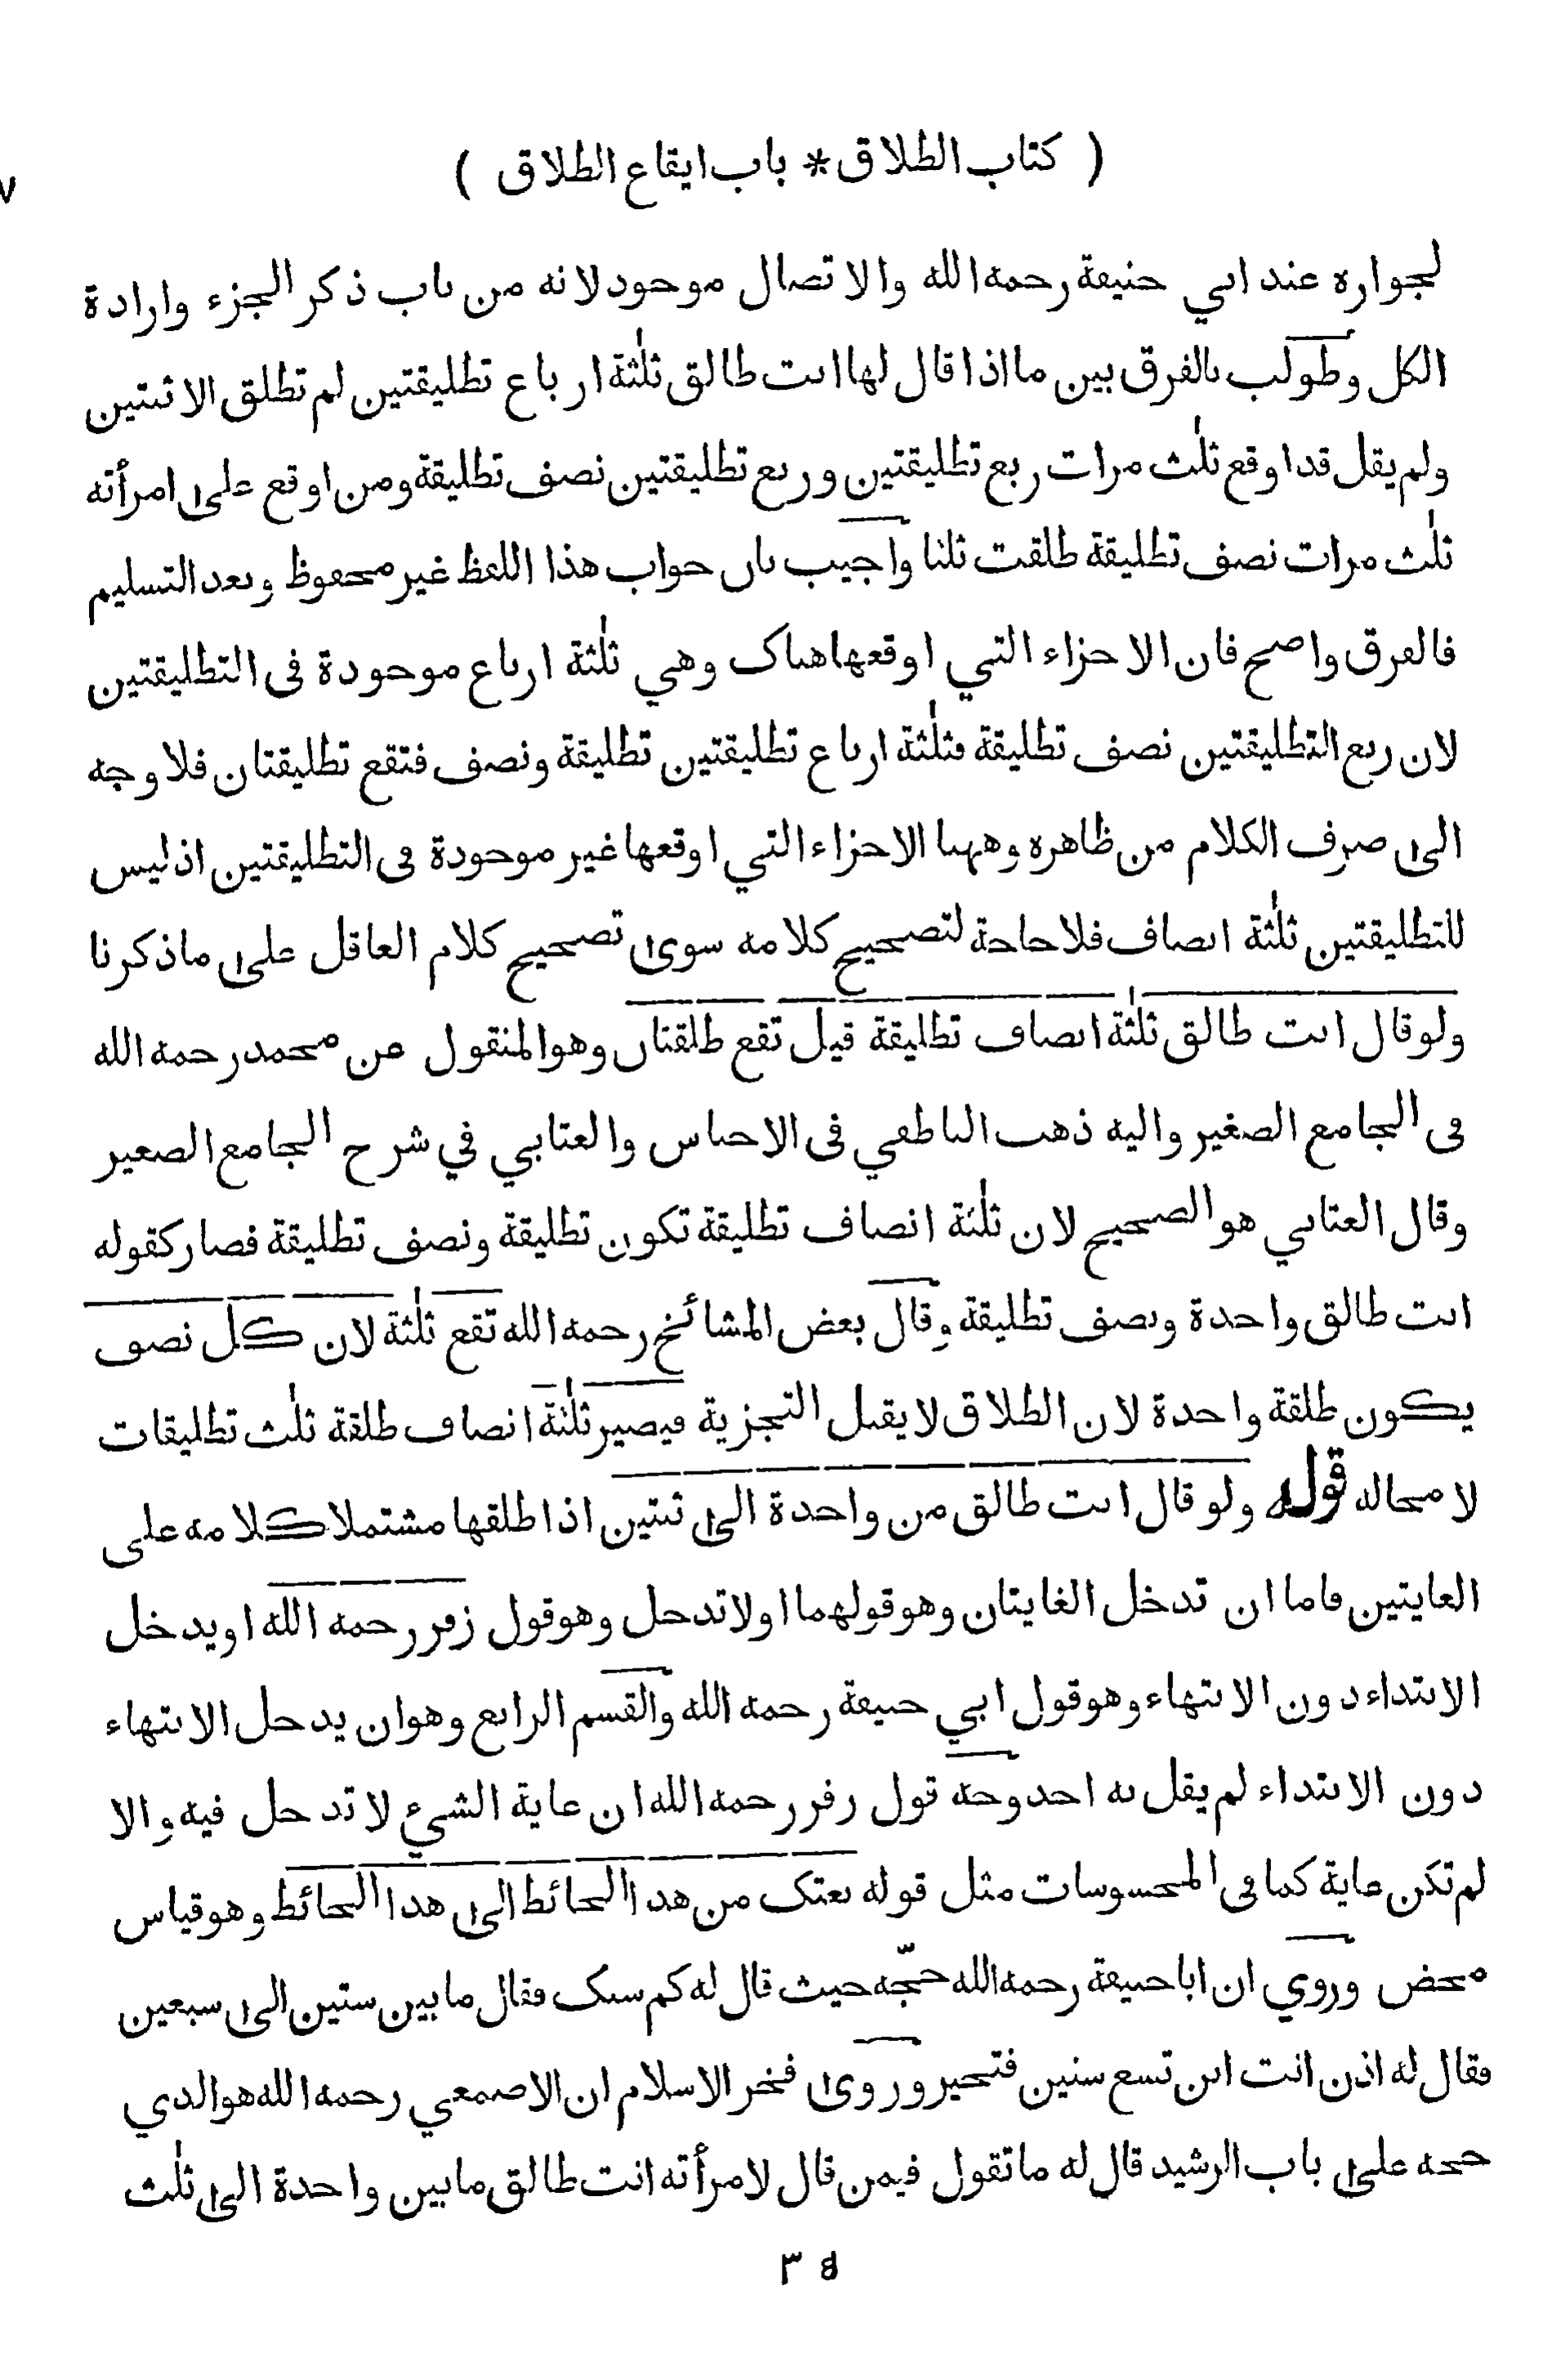 ( كتاب الطلاق * باب ايقاع الطلاق )
٧
لجواره عند ابي حنيفة رحمه الله والاتصال موجود لانه من باب ذكر الجزء وارادة
الكل وطولب بالفرق بين ما اذا قال لها انت طالق ثلٰثة ارباع تطليقتين لم تطلق الا ثنتين
ولم يقل قد اوقع ثلٰث مرات ربع تطليقتين وربع تطليقتين نصف تطليقة ومن اوقع على امرأته
ثلٰث مرات نصف تطليقة طلقت ثلثا واجيب بان جواب هذا اللفظ غير محفوظ وبعد التسليم
فالفرق واضح فان الاجزاء التي اوقعها هناك وهي ثلٰثة ارباع موجودة في التطليقتين
لان ربع التطليقتين نصف تطليقة فثلٰثة ارباع تطليقتين تطليقة ونصف فتقع تطليقتان فلا وجه
الى صرف الكلام من ظاهره وههنا الاجزاء التي اوقعها غير موجودة في التطليقتين اذ ليس
للتطليقتين ثلٰثة انصاف فلا حاجة لتصحيح كلامه سوى تصحيح كلام العاقل على ما ذكرنا
ولو قال انت طالق ثلٰثة انصاف تطليقة قيل تقع طلقتان وهو المنقول عن محمد رحمه الله
في الجامع الصغير واليه ذهب الناطفي في الاجناس والعتابي في شرح الجامع الصغير
وقال العتابي هو الصحيح لان ثلٰثة انصاف تطليقة تكون تطليقة ونصف تطليقة فصار كقوله
انت طالق واحدة ونصف تطليقة وقال بعض المشائخ رحمه الله تقع ثلٰثة لان كل نصف
يكون طلقة واحدة لان الطلاق لا يقبل التجزية فيصير ثلٰثة انصاف طلقة ثلٰث تطليقات
لا محاله قوله ولو قال انت طالق من واحدة الى ثنتين اذا طلقها مشتملا كلامه على
الغايتين فاما ان تدخل الغايتان وهو قولهما او لا تدخل وهو قول زفر رحمه الله او يدخل
الابتداء دون الانتهاء وهو قول ابي حنيفة رحمه الله والقسم الرابع وهو ان يدخل الانتهاء
دون الابتداء لم يقل به احد وجه قول زفر رحمه الله ان غاية الشيء لا تدخل فيه والا
لم تكن غاية كما في المحسوسات مثل قوله بعتك من هذا الحائط الى هذا الحائط وهو قياس
محض وروي ان ابا حنيفة رحمه الله حجّه حيث قال له كم سنك فقال ما بين ستين الى سبعين
فقال له اذن انت ابن تسع سنين فتحير وروى فخر الاسلام ان الاصمعي رحمه الله هو الذي
حجه على باب الرشيد قال له ما تقول فيمن قال لامرأته انت طالق ما بين واحدة الى ثلٰث